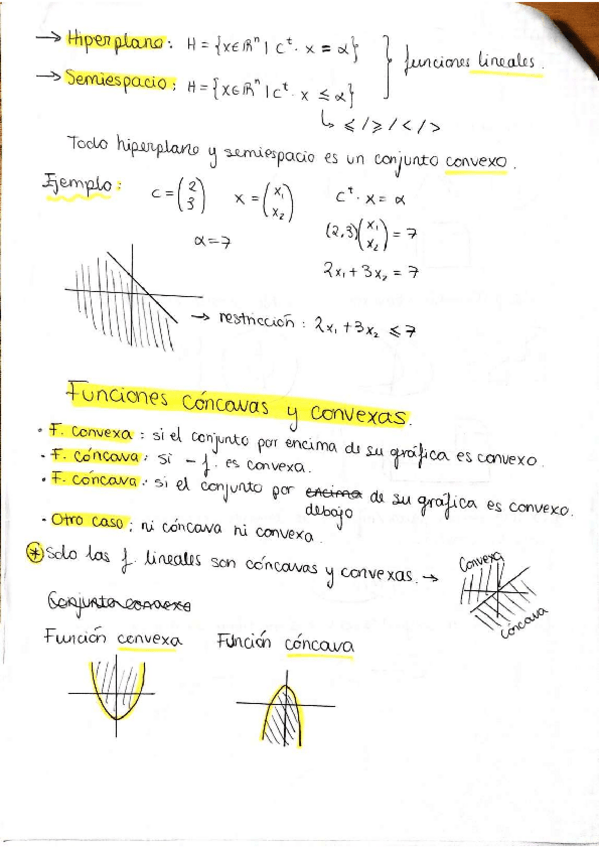 → Hiperplano: H = {x∈ℝⁿ | cᵗ· x = α}
→ Semiespacio: H = {x∈ℝⁿ | cᵗ· x ≤ α}
} funciones lineales.
↳ ≤ / ≥ / < / >
Todo hiperplano y semiespacio es un conjunto convexo.
Ejemplo: c = (2 3) x = (x₁ x₂) cᵗ · x = α
α = 7 (2,3)(x₁ x₂) = 7
2x₁ + 3x₂ = 7
→ restricción: 2x₁ + 3x₂ ≤ 7
Funciones cóncavas y convexas.
· F. convexa: si el conjunto por encima de su gráfica es convexo.
· F. cóncava: si - f. es convexa.
· F. cóncava: si el conjunto por encima de su gráfica es convexo.
debajo
· Otro caso: ni cóncava ni convexa.
* Solo las f. lineales son cóncavas y convexas. →
Convexa
cóncava
Conjunto convexo
Función convexa Función cóncava